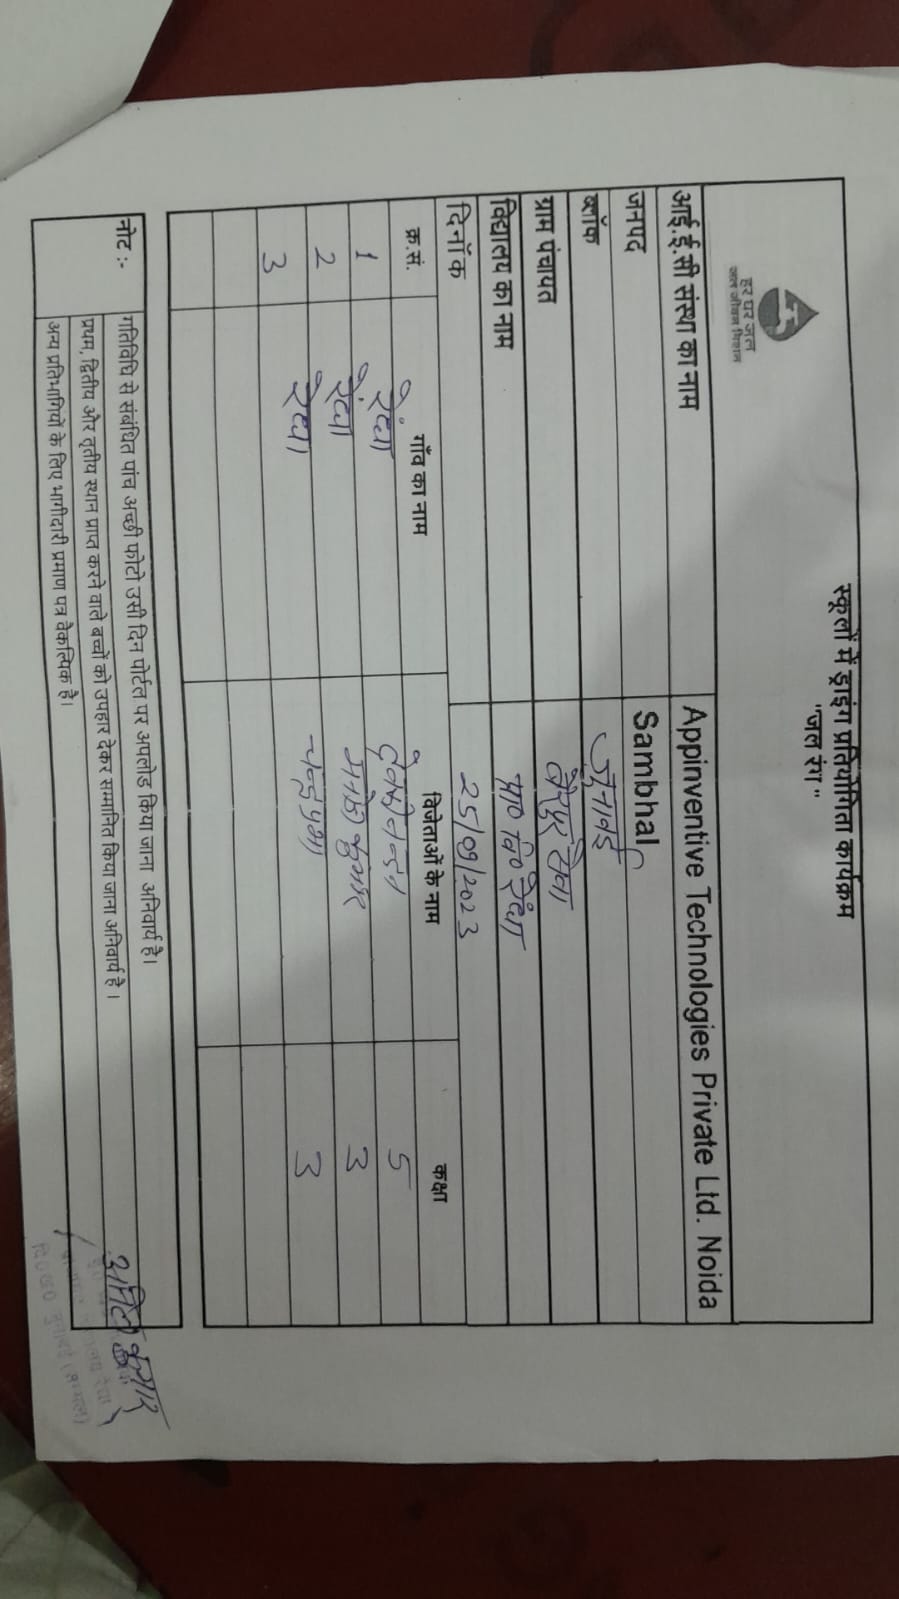 हर घर जल
जल जीवन मिशन
स्कूलों में ड्राइंग प्रतियोगिता कार्यक्रम
"जल रंग"
आई.ई.सी संस्था का नाम Appinventive Technologies Private Ltd. Noida
जनपद Sambhal
ब्लॉक जुनावई
ग्राम पंचायत
विद्यालय का नाम प्रा० वि०
दिनाँक 25/09/2023
क्र.सं. गाँव का नाम विजेताओं के नाम कक्षा
1 5
2 कुमार 3
3 3
नोट :- गतिविधि से संबंधित पांच अच्छी फोटो उसी दिन पोर्टल पर अपलोड किया जाना अनिवार्य है।
प्रथम, द्वितीय और तृतीय स्थान प्राप्त करने वाले बच्चों को उपहार देकर सम्मानित किया जाना अनिवार्य है।
अन्य प्रतिभागियों के लिए भागीदारी प्रमाण पत्र वैकल्पिक है।
अनिल कुमार